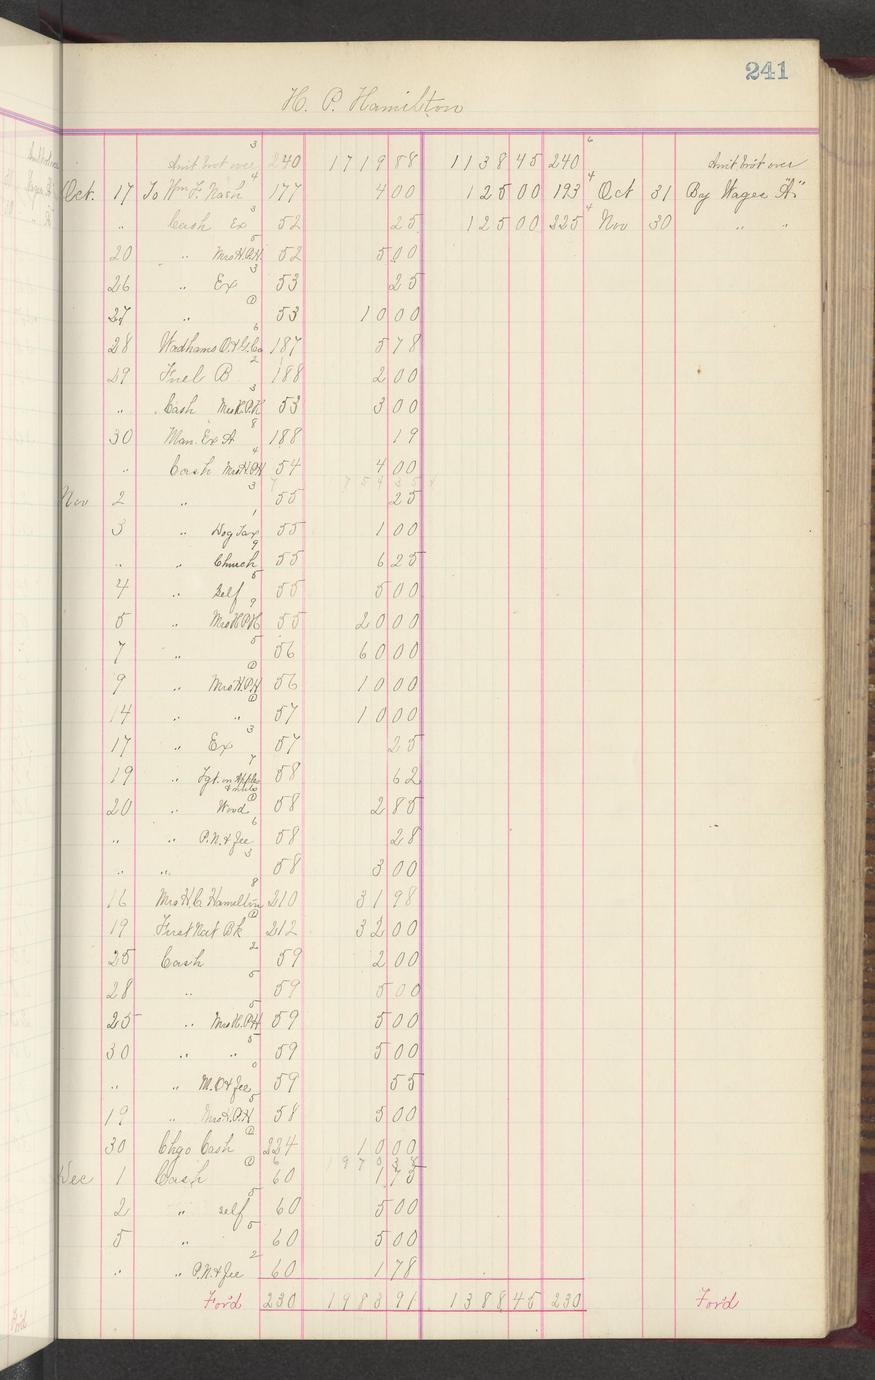 241
H. P. Hamilton
3 6
Amt brot over 240 1719 88 1138 45 240 Amt brot over
Oct. 17 To Wm F. Nash 4 177 4 00 125 00 193 4 Oct 31 By Wages "A"
" Cash Ex 3 52 25 125 00 225 4 Nov 30 " "
20 " Mrs H.P.H. 5 52 5 00
26 " Ex 3 53 25
27 " ① 53 10 00
28 Wadhams O. & G. Co 6 187 5 78
29 Fuel B 2 188 2 00
" Cash Mrs H.P.H 3 53 3 00
30 Man. Ex A 8 188 19
" Cash Mrs H.P.H 4 54 4 00
Nov 2 " 3 55 25
3 " Dog Tax 1 55 1 00
" " Church 9 55 6 25
4 " Self 5 55 5 00
5 " Mrs H.P.H 9 55 20 00
7 " 5 56 60 00
9 " Mrs H.P.H ① 56 10 00
14 " " ① 57 10 00
17 " Ex 3 57 25
19 " Fgt. on Apples & nuts 7 58 62
20 " Wood ① 58 2 85
" " P.N. & Fee 6 58 28
" " 3 58 3 00
16 Mrs H. C. Hamilton 8 210 31 98
19 First Nat Bk ① 212 32 00
25 Cash 2 59 2 00
28 " 5 59 5 00
25 " Mrs H.P.H 5 59 5 00
30 " " 5 59 5 00
" " M.O & Fee 0 59 55
19 " Mrs H.P.H 5 58 5 00
30 Chgo Cash ① 224 10 00
Dec 1 Cash ① 60 1 75
2 " self 5 60 5 00
5 " 5 60 5 00
" " P.N. & Fee 2 60 1 78
For'd 230 1983 91 1388 45 230 For'd